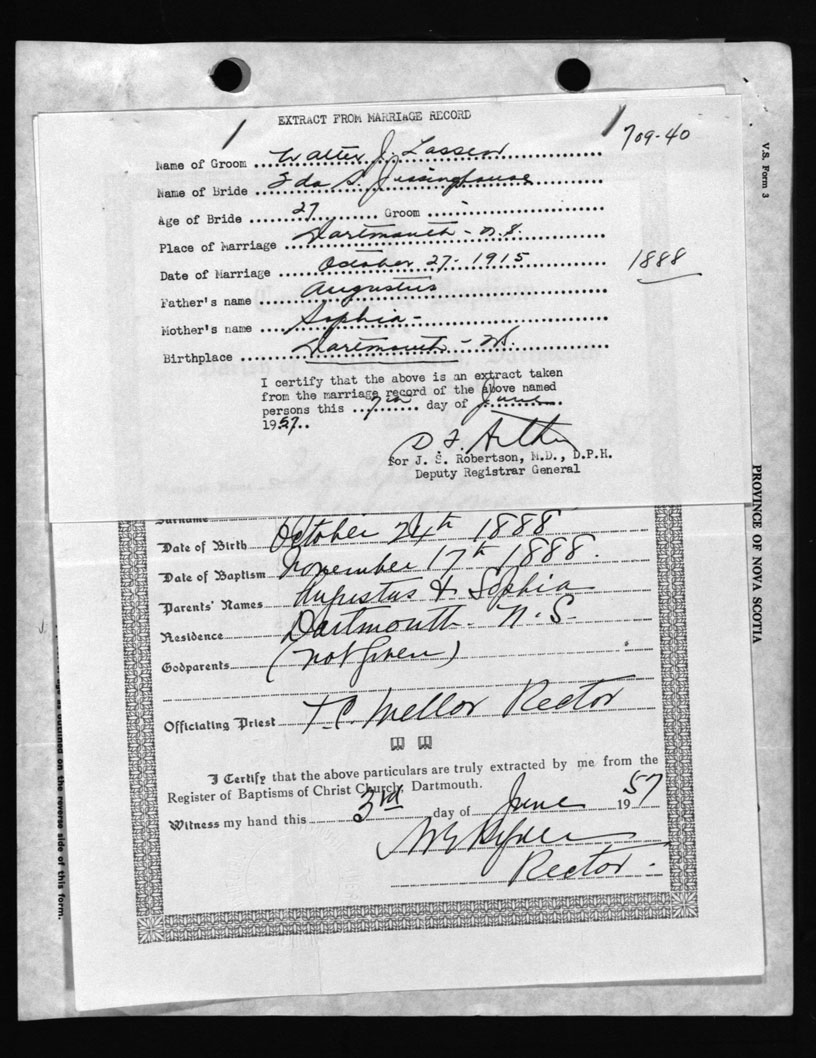 EXTRACT FROM MARRIAGE RECORD
709-40
Name of Groom Walter J. Lasson
Name of Bride Ida S. Jussinghouse
Age of Bride 27 Groom
Place of Marriage Dartmouth - N.S.
Date of Marriage October 27 - 1915
1888
Father's name Augustus
Mother's name Sophia -
Birthplace Dartmouth - N.S.
I certify that the above is an extract taken
from the marriage record of the above named
persons this 7th day of June
1957.
for J. S. Robertson, M.D., D.P.H.
Deputy Registrar General
Surname
Date of Birth October 24th 1888
Date of Baptism November 17th 1888.
Parents' Names Augustus & Sophia
Residence Dartmouth. N.S.
Godparents (not given)
Officiating Priest T.C. Mellor Rector
I Certify that the above particulars are truly extracted by me from the
Register of Baptisms of Christ Church, Dartmouth.
Witness my hand this 3rd day of June 1957
Rector.
V.S. Form 3
PROVINCE OF NOVA SCOTIA
as outlined on the reverse side of this form.